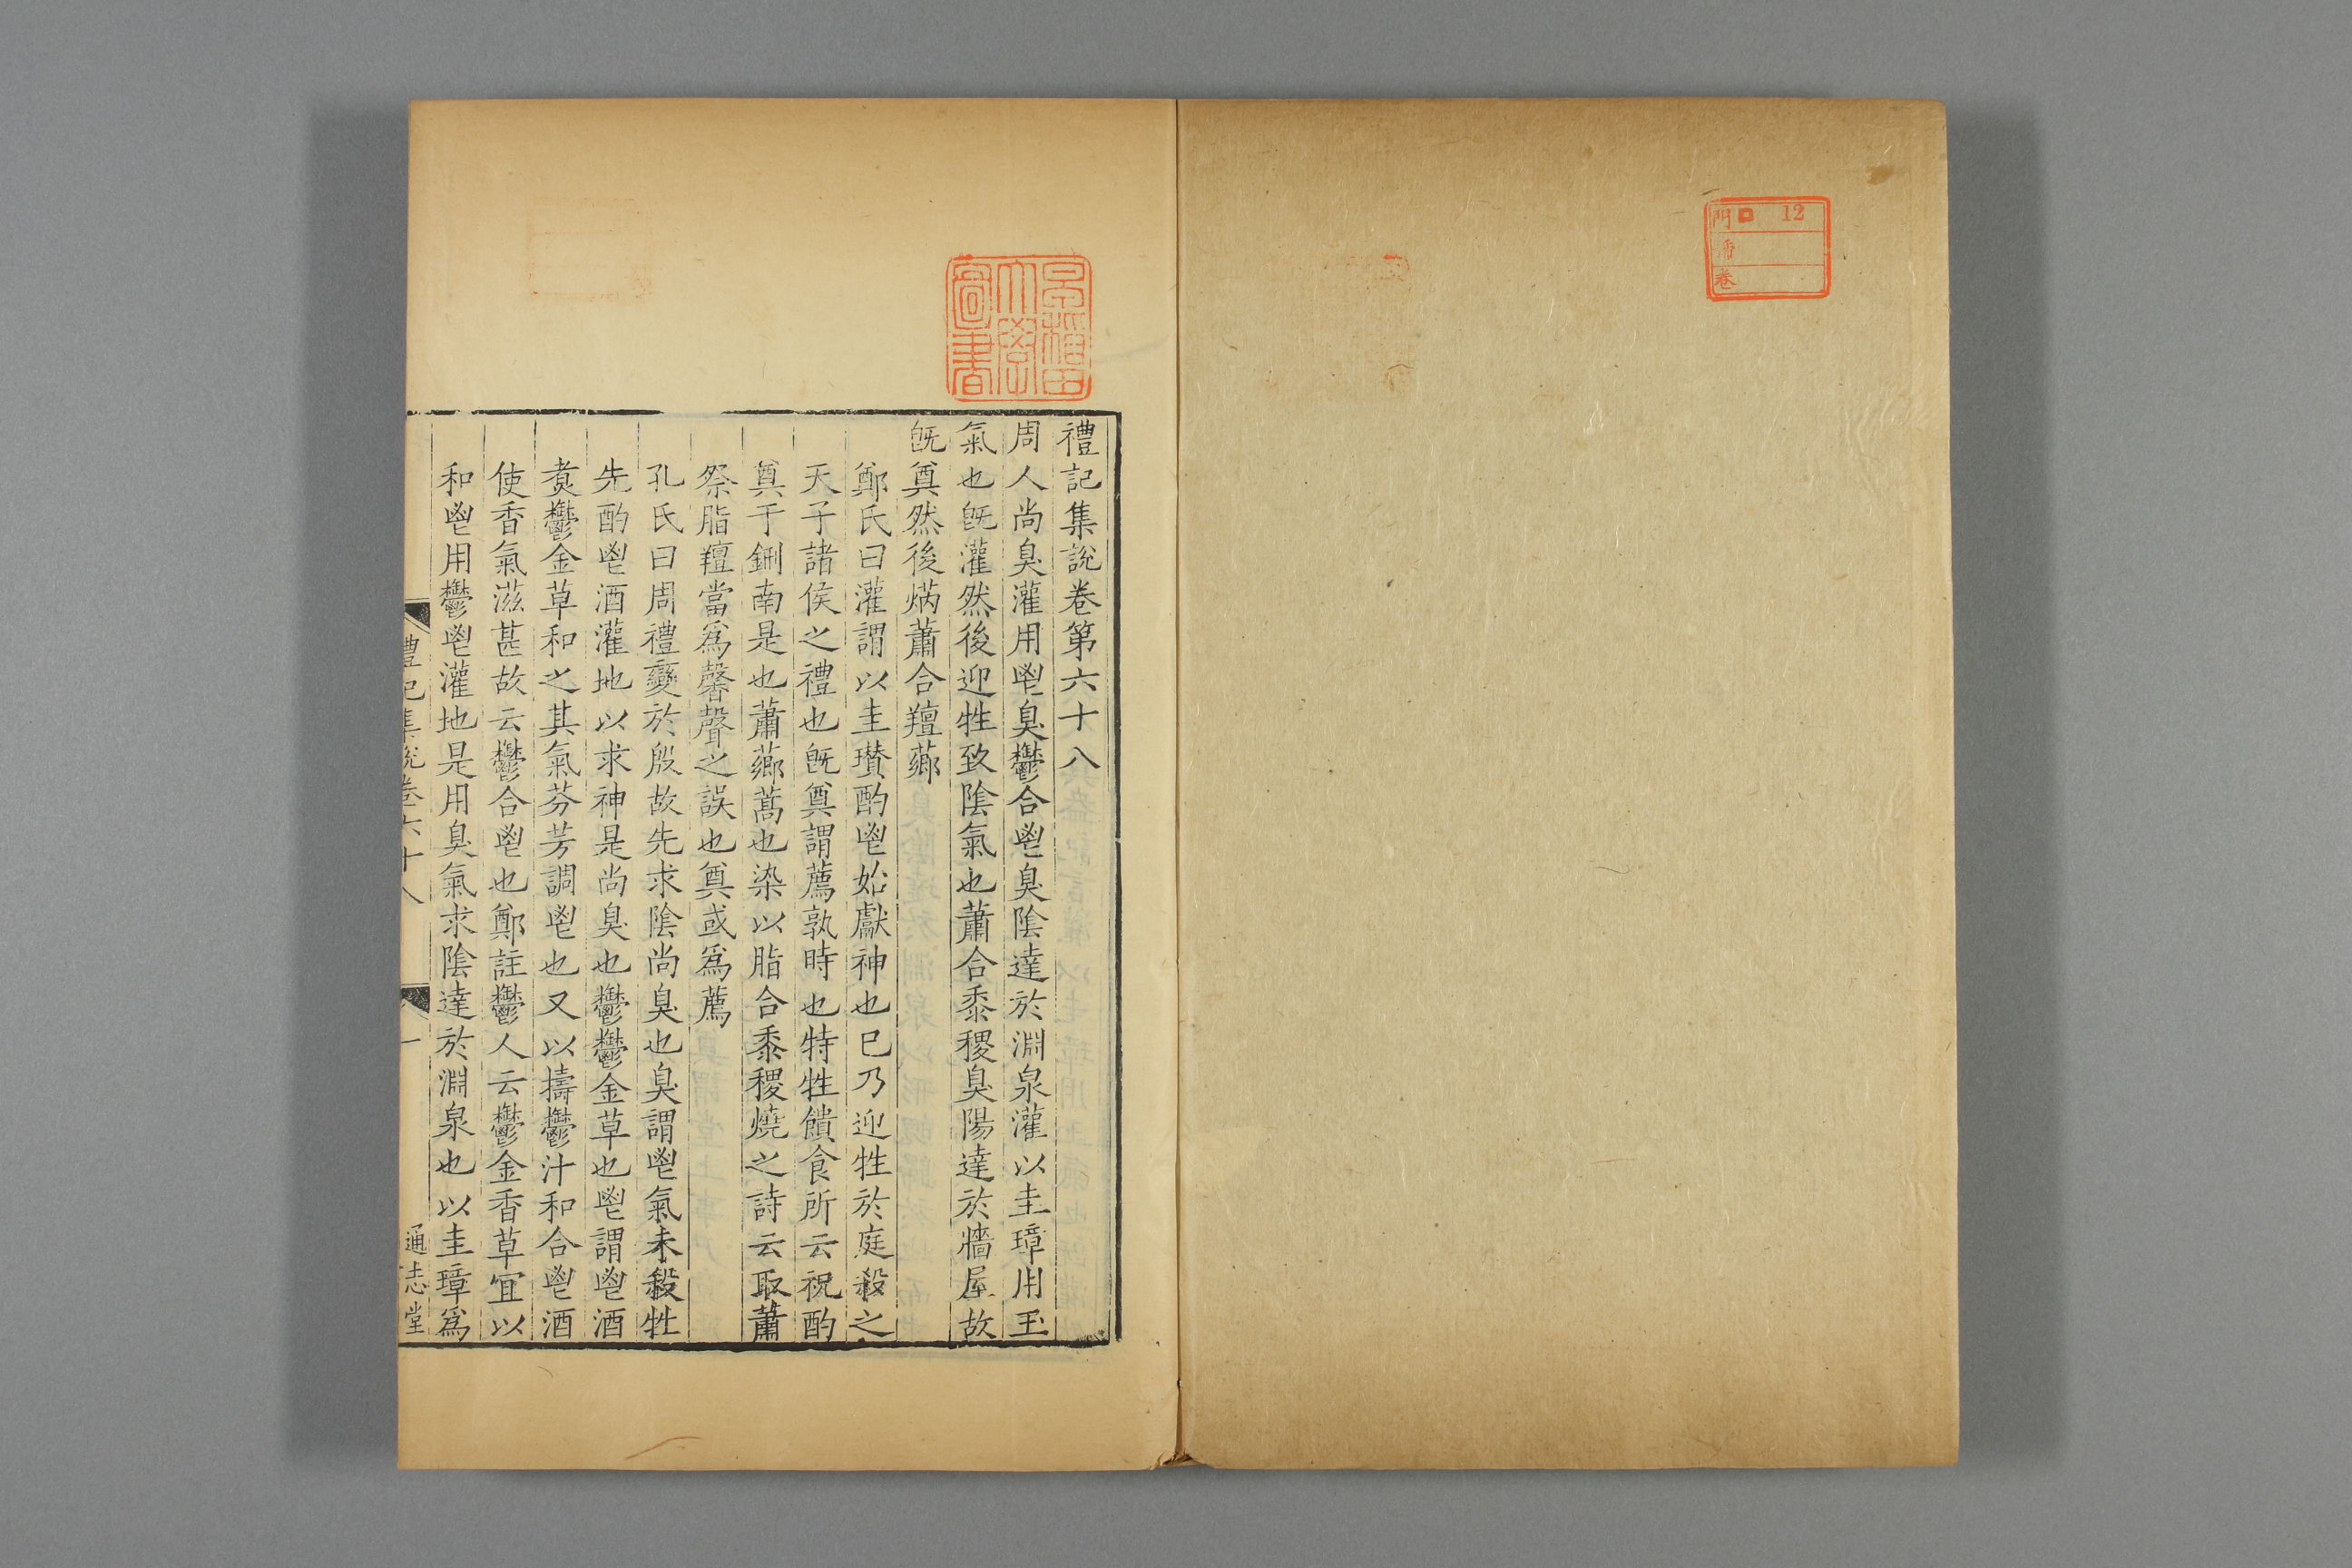 門 12
番
卷
早稲田
大學
圖書
禮記集說卷第六十八
周人尚臭灌用鬯臭鬱合鬯臭陰達於淵泉灌以圭璋用玉
氣也旣灌然後迎牲致陰氣也蕭合黍稷臭陽達於牆屋故
旣奠然後焫蕭合羶薌
鄭氏曰灌謂以圭瓚酌鬯始獻神也已乃迎牲於庭殺之
天子諸侯之禮也旣奠謂薦孰時也特牲饋食所云祝酌
奠于鉶南是也蕭薌蒿也染以脂合黍稷燒之詩云取蕭
祭脂羶當爲馨聲之誤也奠或爲薦
孔氏曰周禮變於殷故先求陰尚臭也臭謂鬯氣未殺牲
先酌鬯酒灌地以求神是尚臭也鬱鬱金草也鬯謂鬯酒
煑鬱金草和之其氣芬芳調鬯也又以擣鬱汁和合鬯酒
使香氣滋甚故云鬱合鬯也鄭註鬱人云鬱金香草宜以
和鬯用鬱鬯灌地是用臭氣求陰達於淵泉也以圭璋爲
禮記集說卷六十八 一 通志堂